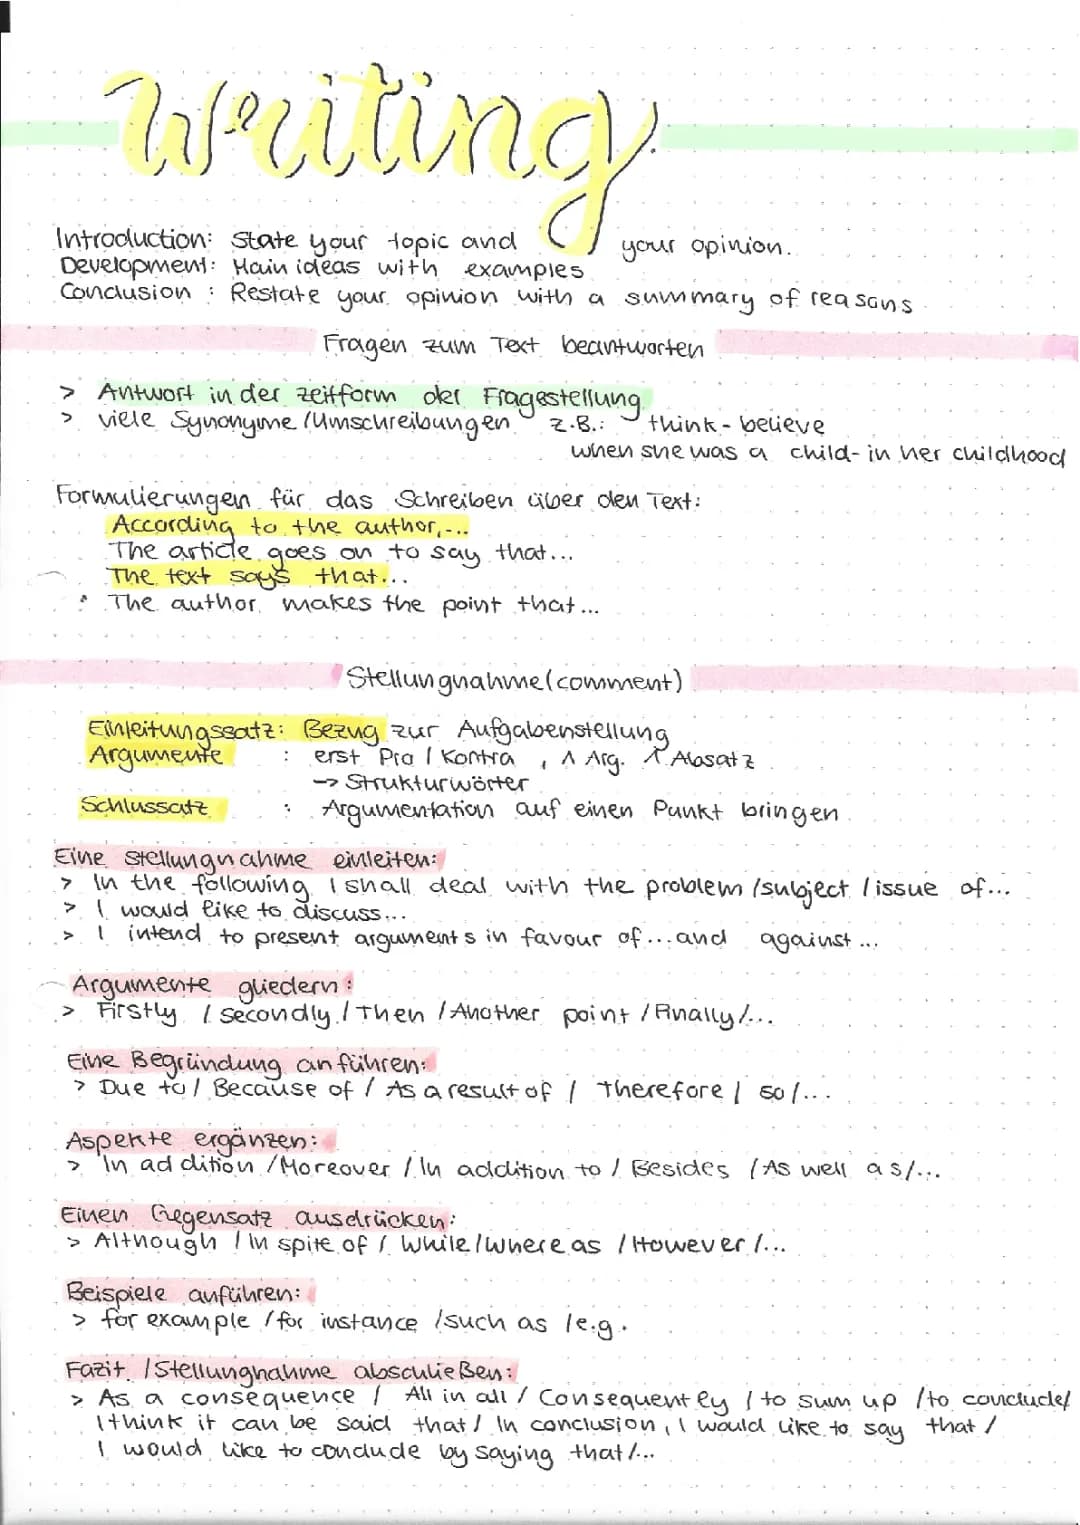 Writing
Introduction: State your topic and your opinion.
Development: Main ideas with examples
Conclusion : Restate your opinion with a summary of reasons
Fragen zum Text beantworten
> Antwort in der Zeitform der Fragestellung
> viele Synonyme /Umschreibungen z.B.: think - believe
when she was a child - in her childhood
Formulierungen für das Schreiben über den Text:
According to the author,...
The article goes on to say that...
The text says that...
The author makes the point that...
Stellungnahme (comment)
Einleitungssatz: Bezug zur Aufgabenstellung
Argumente : erst Pro / Kontra , 1 Arg. 1 Absatz
-> Strukturwörter
Schlussatz : Argumentation auf einen Punkt bringen
Eine Stellungnahme einleiten:
> In the following I shall deal with the problem /subject / issue of...
> I would like to discuss...
> I intend to present arguments in favour of...and against...
Argumente gliedern:
> Firstly / Secondly / Then / Another point / Finally /...
Eine Begründung anführen:
> Due to / Because of / As a result of / Therefore / so /...
Aspekte ergänzen:
> In addition /Moreover / In addition to / Besides / As well as/...
Einen Gegensatz ausdrücken:
> Although / In spite of / While / Whereas / However /...
Beispiele anführen:
> for example / for instance /such as /e.g.
Fazit / Stellunghahme abschließen:
> As a consequence / All in all / Consequently / to sum up /to conclude/
I think it can be said that / In conclusion, I would like to say that /
I would like to conclude by saying that /...